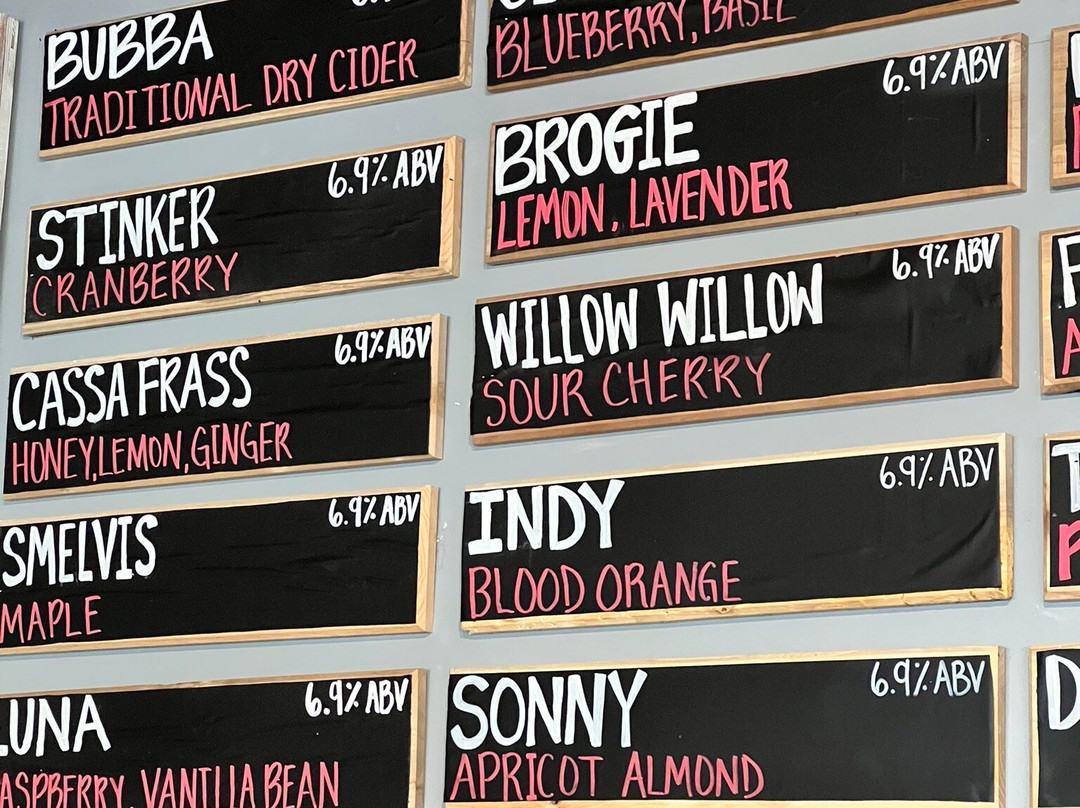 BUBBA
TRADITIONAL DRY CIDER
6.9% ABV
STINKER
CRANBERRY
6.9% ABV
CASSA FRASS
HONEY, LEMON, GINGER
6.9% ABV
SMELVIS
MAPLE
6.9% ABV
LUNA
RASPBERRY, VANILLA BEAN
BLUEBERRY, BASIL
6.9% ABV
BROGIE
LEMON, LAVENDER
6.9% ABV
WILLOW WILLOW
SOUR CHERRY
6.9% ABV
INDY
BLOOD ORANGE
6.9% ABV
SONNY
APRICOT ALMOND